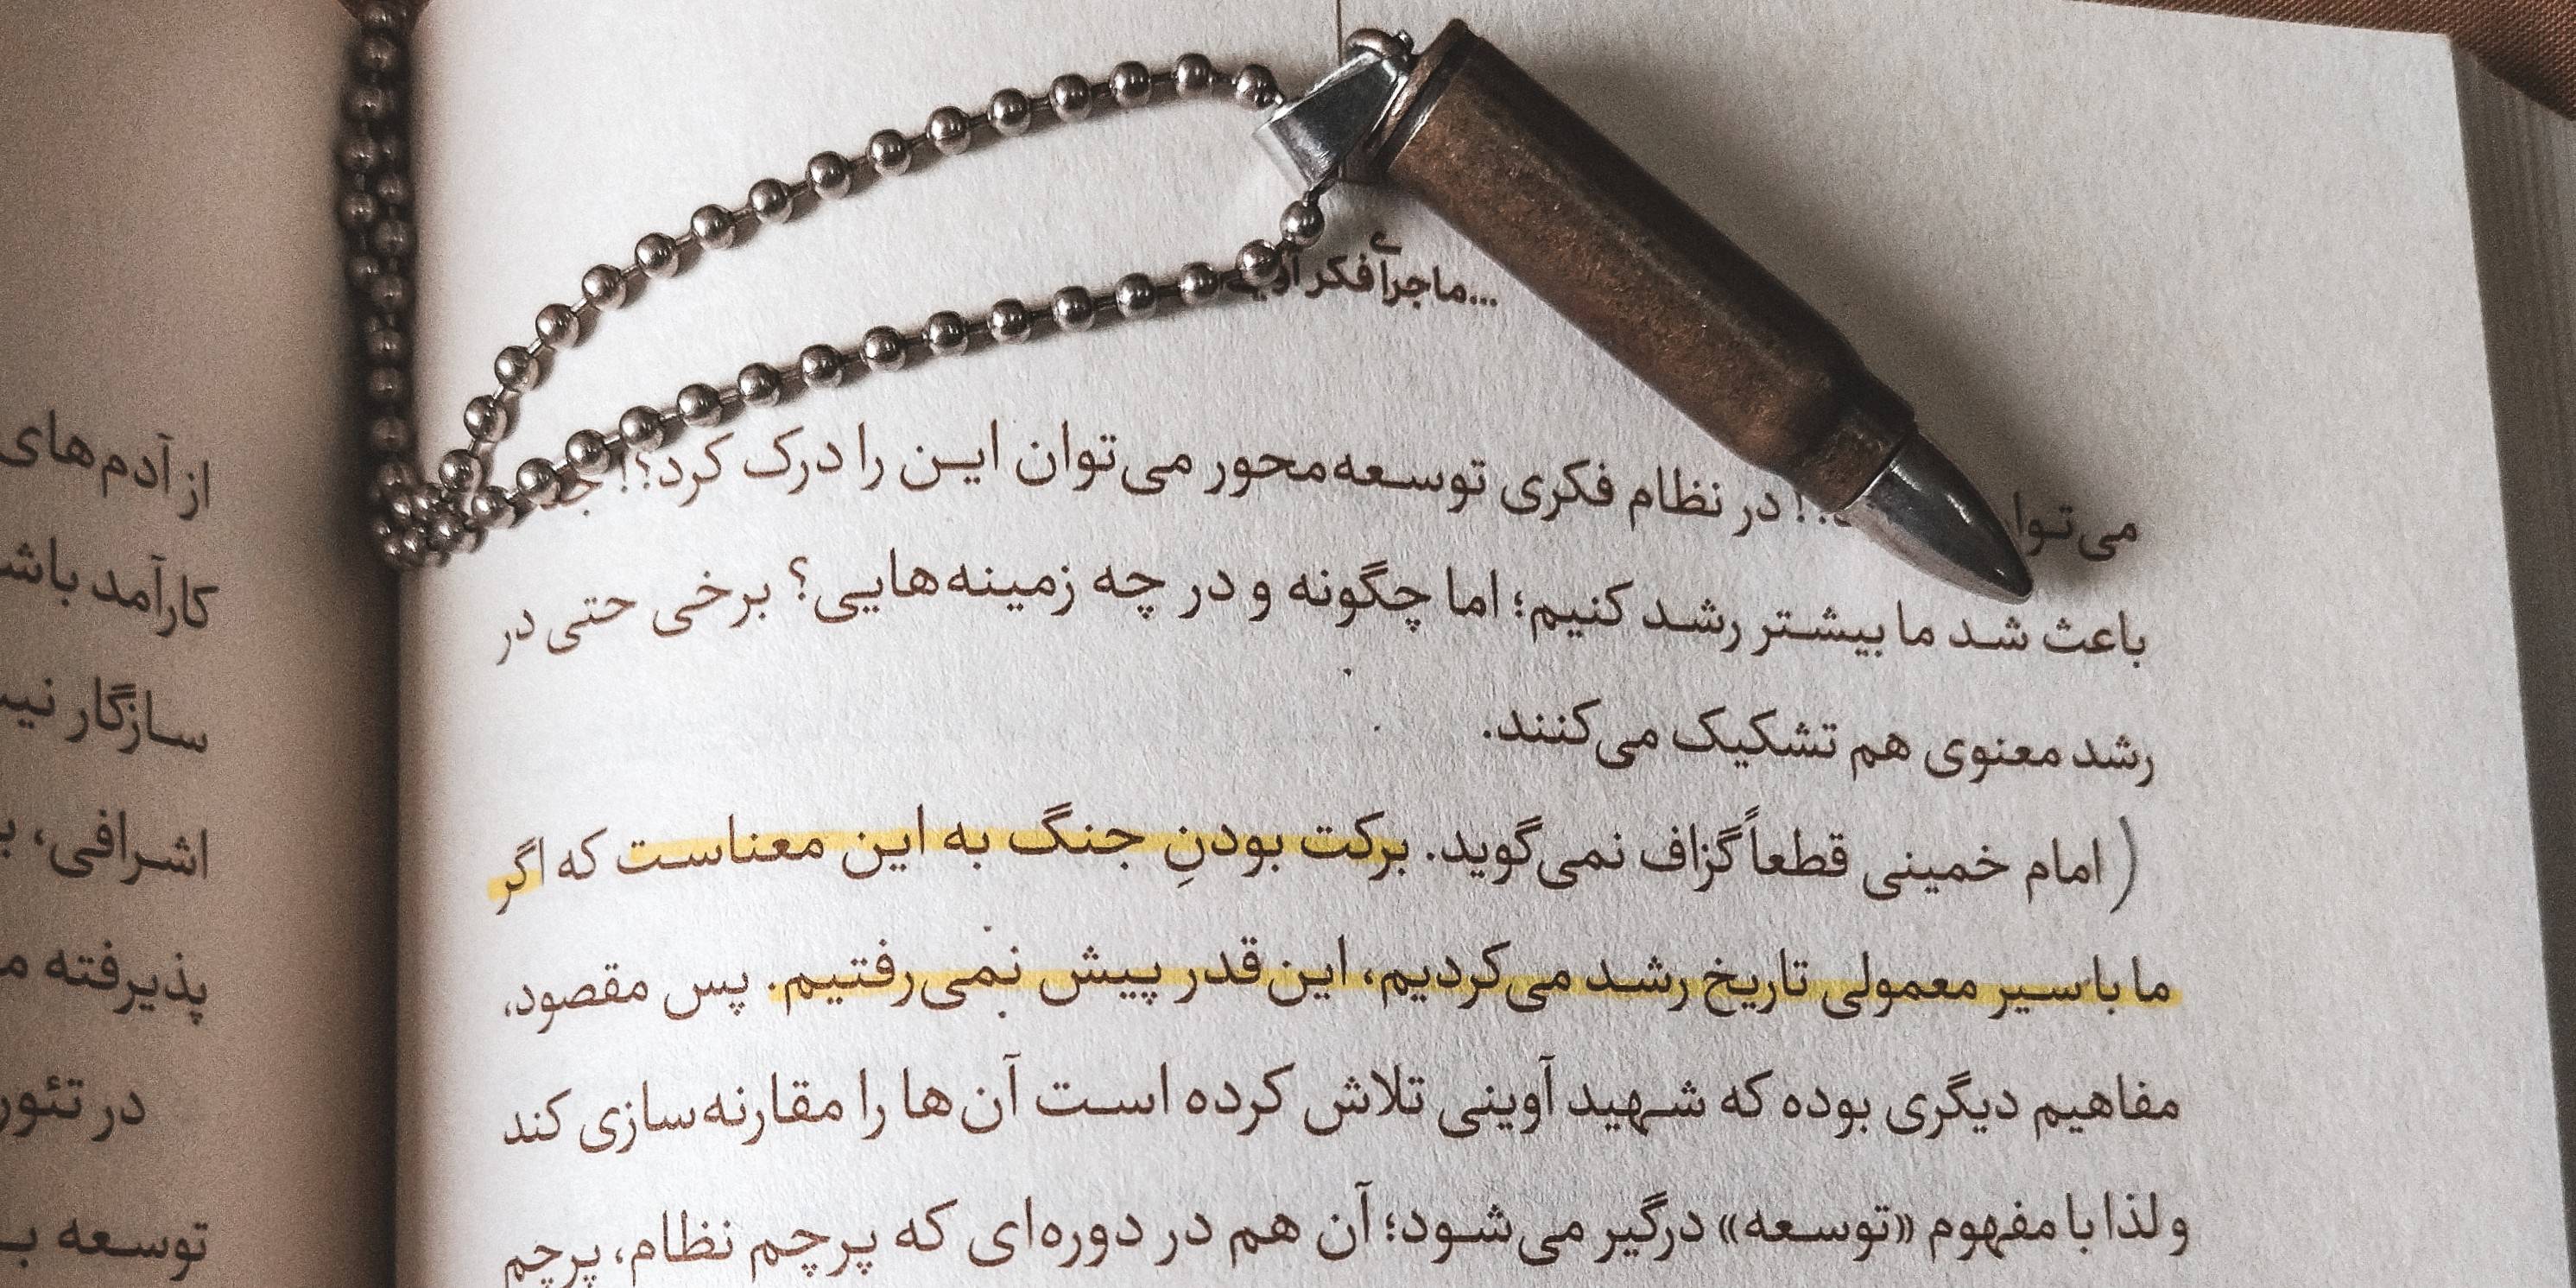 ...ماجرای فکر
می‌توا ؟! در نظام فکری توسعه‌محور می‌توان این را درک کرد؟!
باعث شد ما بیشتر رشد کنیم؛ اما چگونه و در چه زمینه‌هایی؟ برخی حتی در
رشد معنوی هم تشکیک می‌کنند.
( امام خمینی قطعاً گزاف نمی‌گوید. برکت بودنِ جنگ به این معناست که اگر
ما با سیر معمولی تاریخ رشد می‌کردیم، این‌قدر پیش نمی‌رفتیم. پس مقصود،
مفاهیم دیگری بوده که شهید آوینی تلاش کرده است آن‌ها را مقارنه‌سازی کند
و لذا با مفهوم «توسعه» درگیر می‌شود؛ آن هم در دوره‌ای که پرچم نظام، پرچم
از آدم‌های
کارآمد باش
سازگار نی
اشرافی، ب
پذیرفته م
در تئور
توسعه ب